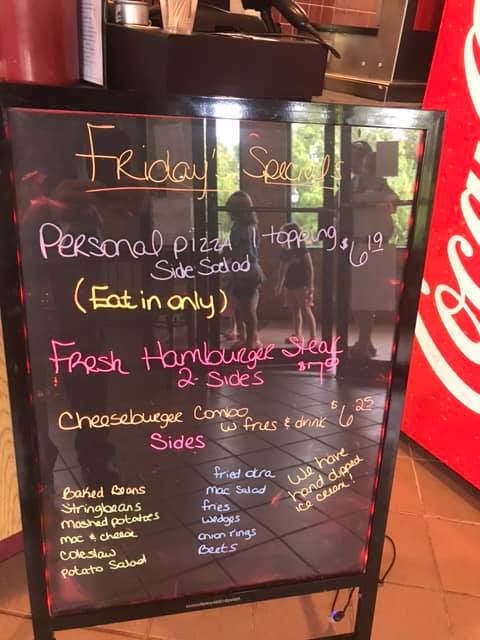 Friday's Specials
Personal pizza 1 topping $6.19
Side Salad
(Eat in only)
Fresh Hamburger Steak
2- Sides
Cheeseburger Combo
w fries & drink $6.25
Sides
Baked Beans
Stringbeans
mashed potatoes
mac & cheese
coleslaw
potato Salad
fried okra
mac Salad
fries
wedges
onion rings
Beets
We have
hand dipped
ice cream!
Coca